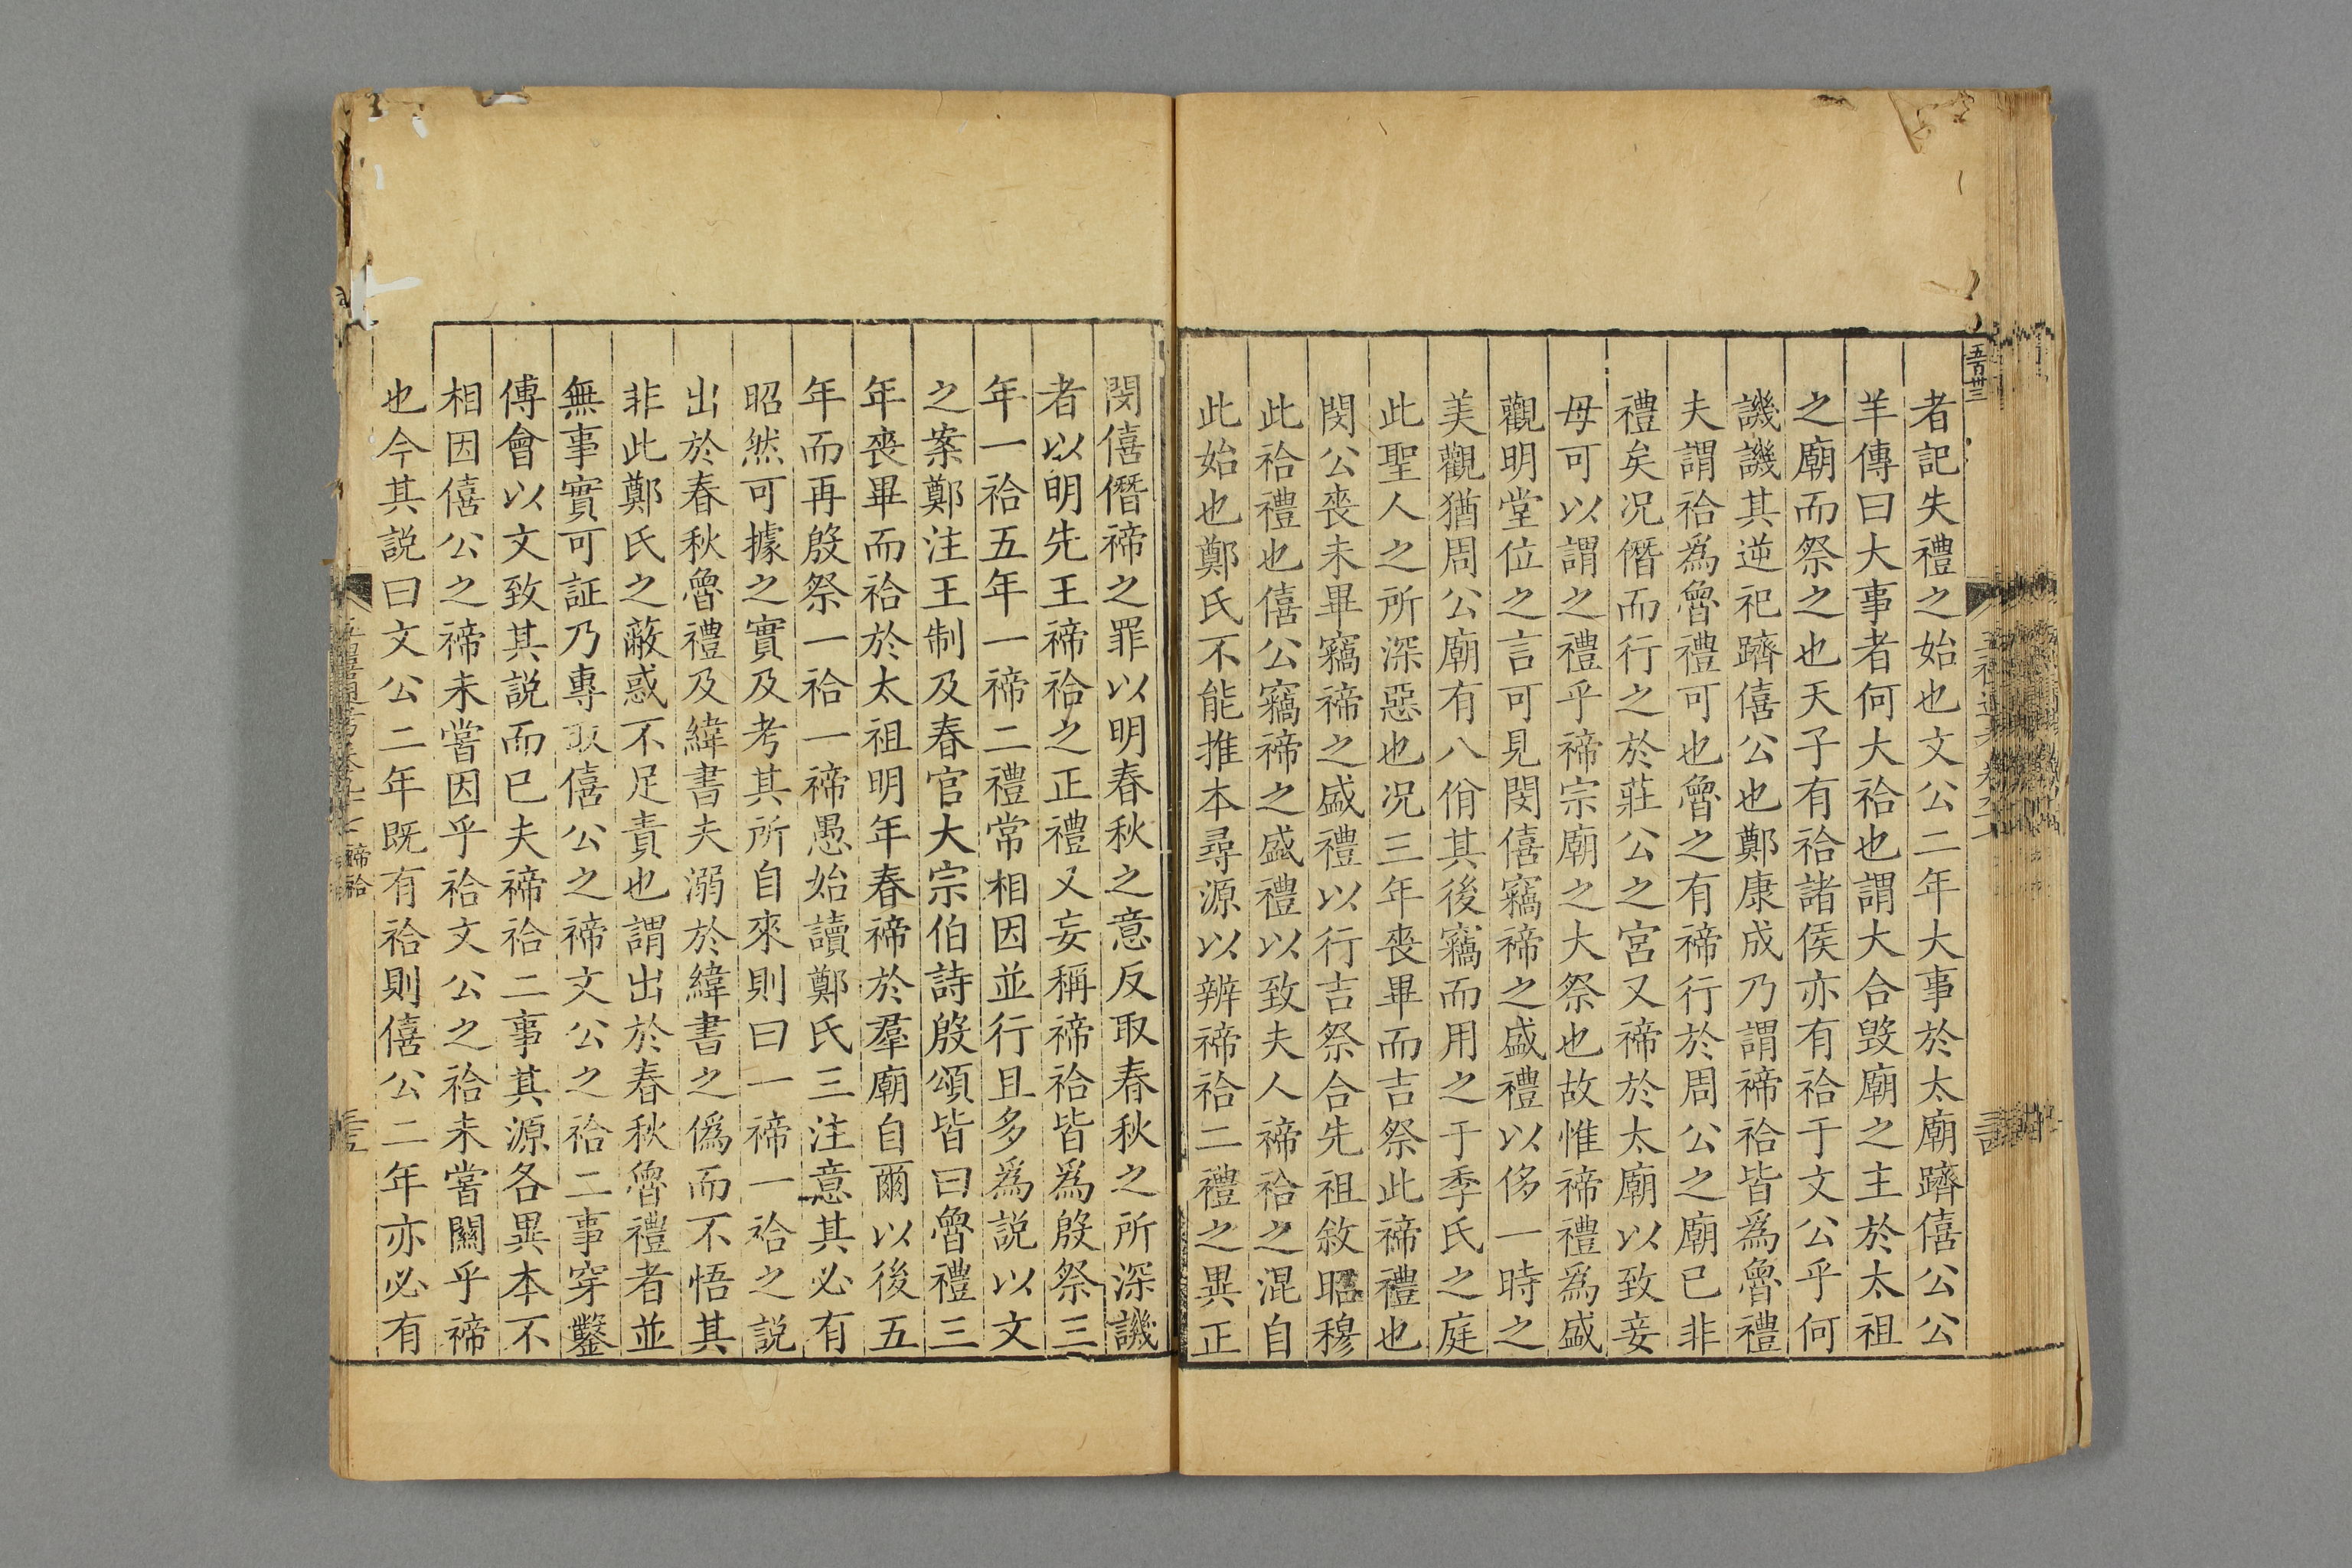 五百卅三
者記失禮之始也文公二年大事於太廟躋僖公公
羊傳曰大事者何大祫也謂大合毁廟之主於太祖
之廟而祭之也天子有祫諸侯亦有祫于文公乎何
譏譏其逆祀躋僖公也鄭康成乃謂禘祫皆爲魯禮
夫謂祫爲魯禮可也魯之有禘行於周公之廟已非
禮矣况僭而行之於莊公之宮又禘於太廟以致妾
母可以謂之禮乎禘宗廟之大祭也故惟禘禮爲盛
觀明堂位之言可見閔僖竊禘之盛禮以侈一時之
美觀猶周公廟有八佾其後竊而用之于季氏之庭
此聖人之所深惡也况三年喪畢而吉祭此禘禮也
閔公喪未畢竊禘之盛禮以行吉祭合先祖敘昭穆
此祫禮也僖公竊禘之盛禮以致夫人禘祫之混自
此始也鄭氏不能推本尋源以辨禘祫二禮之異正
閔僖僭禘之罪以明春秋之意反取春秋之所深譏
者以明先王禘祫之正禮又妄稱禘祫皆爲殷祭三
年一祫五年一禘二禮常相因並行且多爲説以文
之案鄭注王制及春官大宗伯詩殷頌皆曰魯禮三
年喪畢而祫於太祖明年春禘於羣廟自爾以後五
年而再殷祭一祫一禘愚始讀鄭氏三注意其必有
昭然可據之實及考其所自來則曰一禘一祫之説
出於春秋魯禮及緯書夫溺於緯書之僞而不悟其
非此鄭氏之蔽惑不足責也謂出於春秋魯禮者並
無事實可証乃專取僖公之禘文公之祫二事穿鑿
傅會以文致其説而已夫禘祫二事其源各異本不
相因僖公之禘未嘗因乎祫文公之祫未嘗關乎禘
也今其説曰文公二年既有祫則僖公二年亦必有
禘祫